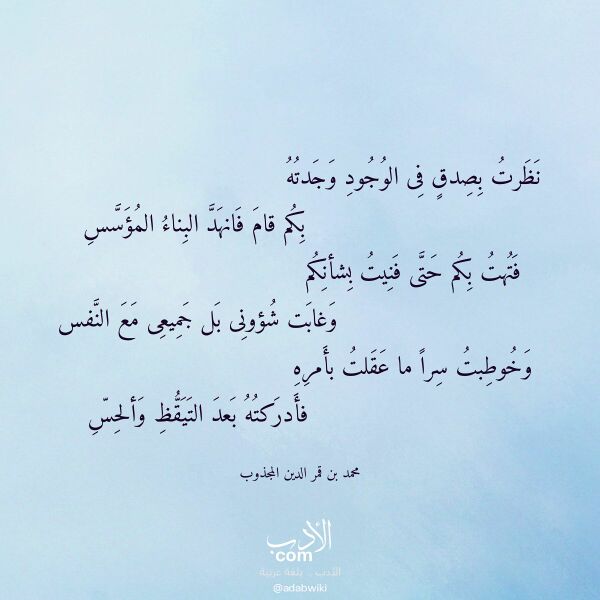 نَظَرتُ بِصِدقٍ فِى الوُجُودِ وَجَدتُهُ
بِكُم قامَ فَانهَدَّ البِناءُ المُؤَسَّسِ
فَتُهتُ بِكُم حَتَّى فَنِيتُ بِشأنِكُم
وَغابَت شُؤونِى بَل جَمِيعِى مَعَ النَّفس
وَخُوطِبتُ سِراً ما عَقَلتُ بأَمرِهِ
فأَدرَكتُهُ بَعدَ التَيَقُّظِ وَألحِسِّ
محمد بن قمر الدين المجذوب
الأدب
com
الأدب .. بلغة عربية
@adabwiki